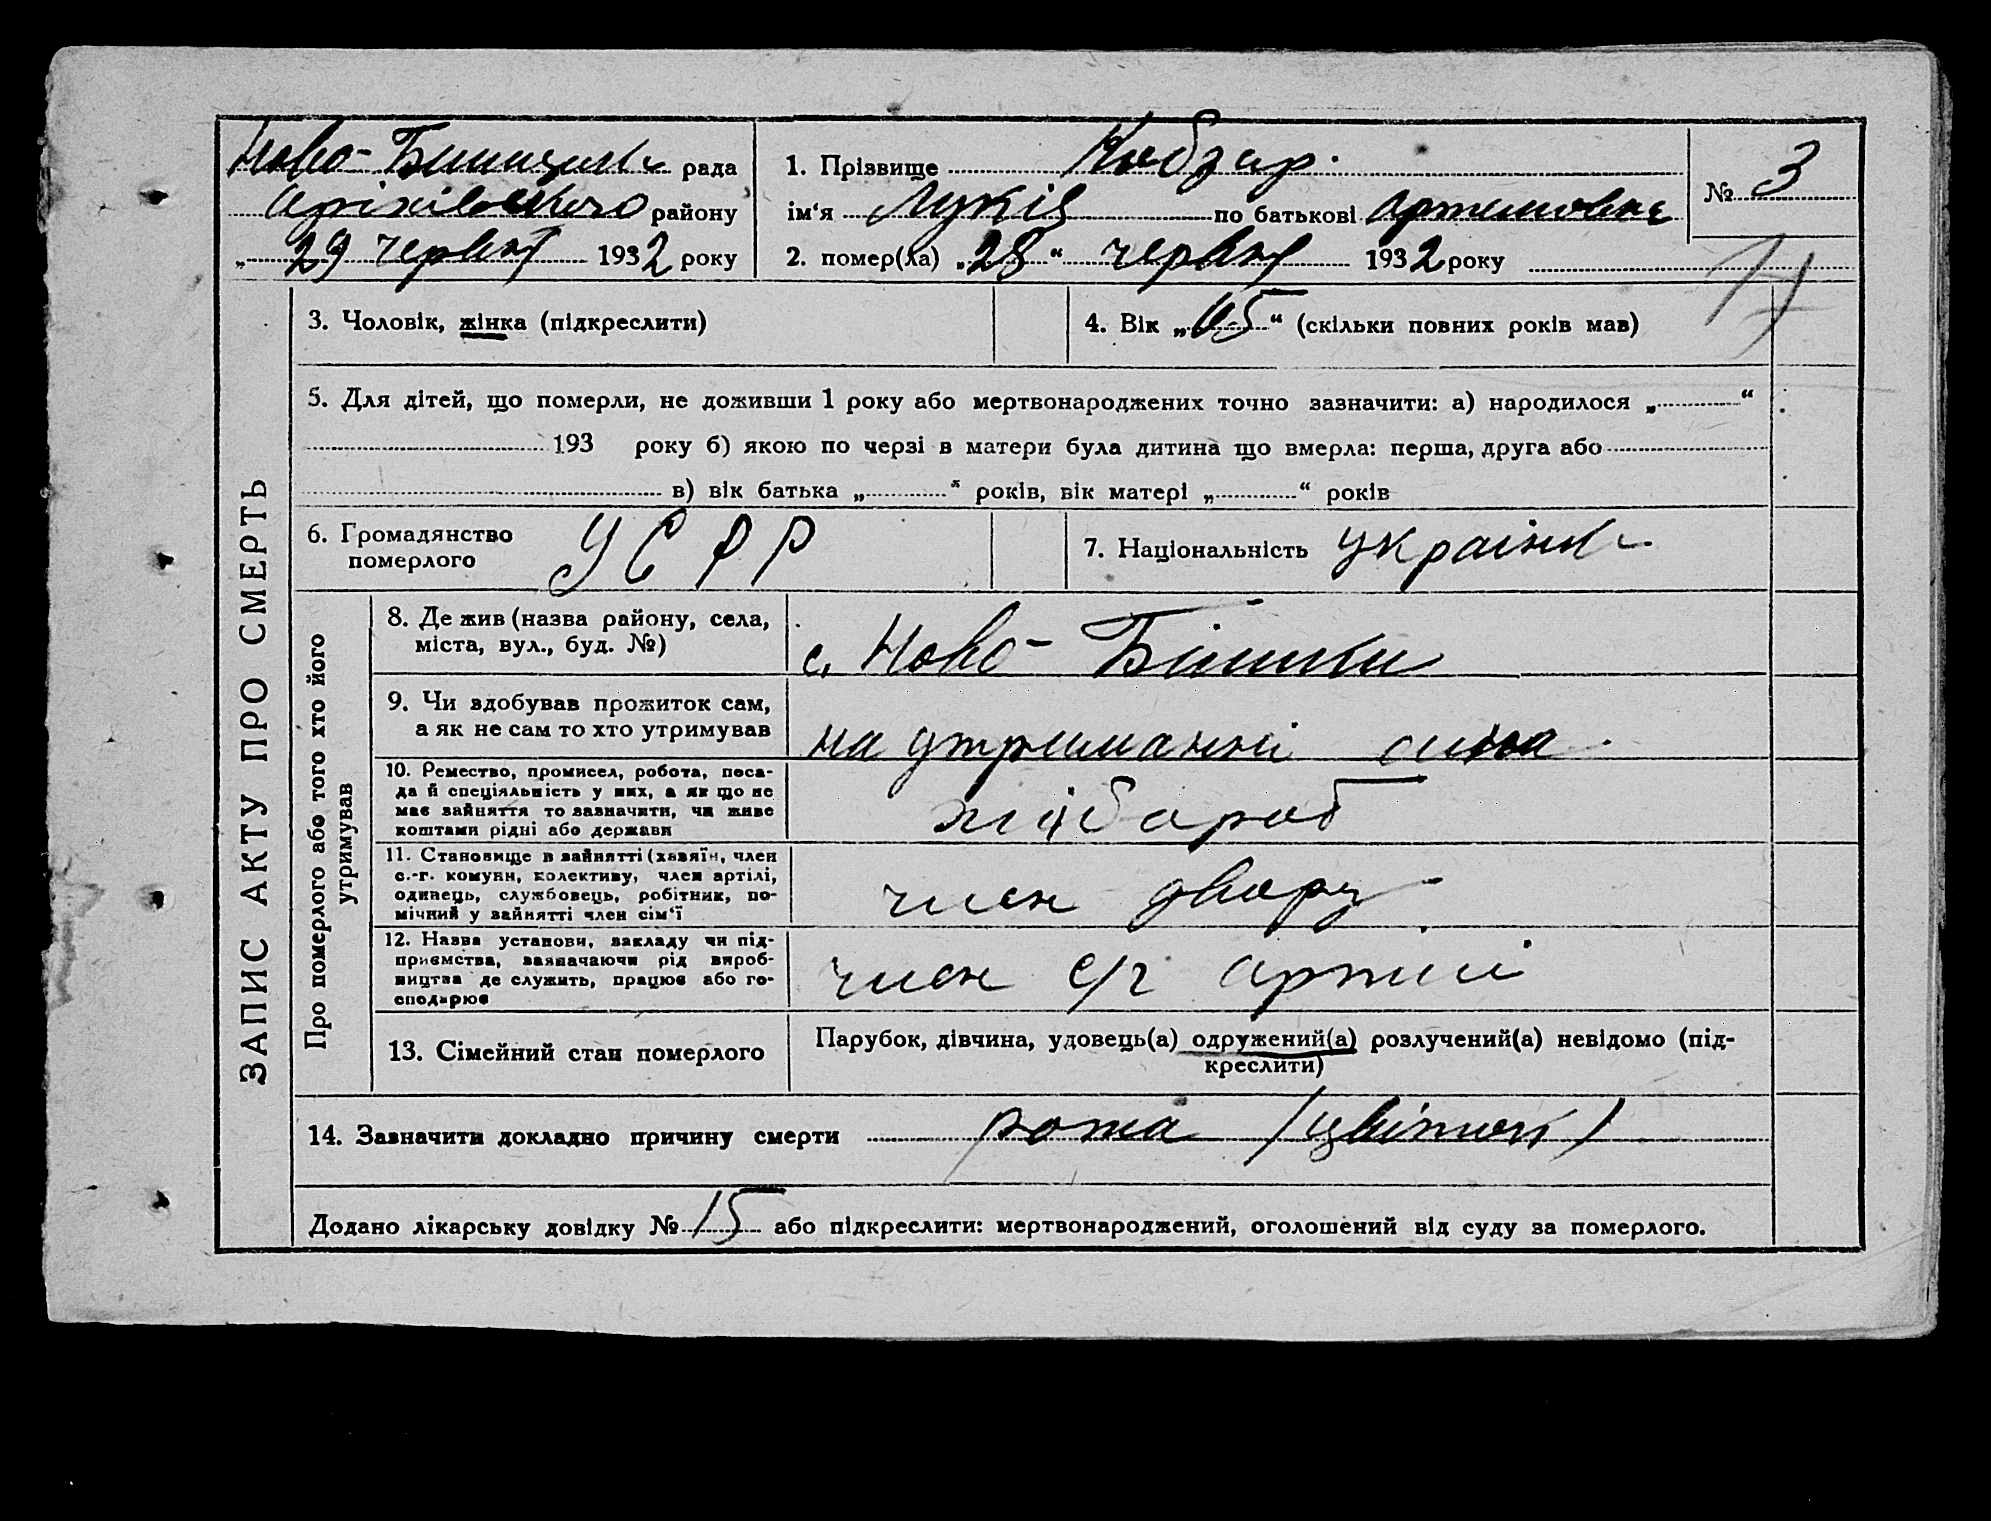 Ново- рада
району
„ 29 червня 1932 року
1. Прізвище Кобзар.
ім‘я Лукія по батькові Артемовна
2. помер(ла) „28“ червня 1932 року
№ 3
ЗАПИС АКТУ ПРО СМЕРТЬ
3. Чоловік, жінка (підкреслити)
4. Вік „65“ (скільки повних років мав)
5. Для дітей, що померли, не доживши 1 року або мертвонароджених точно зазначити: а) народилося „ “
193 року б) якою по черзі в матери була дитина що вмерла: перша, друга або
в) вік батька „ “ років, вік матері „ “ років
6. Громадянство
померлого
УСРР
7. Національність українк
Про померлого або того хто його
утримував
8. Де жив (назва району, села,
міста, вул., буд. №)
с. Ново-
9. Чи здобував прожиток сам,
а як не сам то хто утримував
на утриманні сина
10. Ремество, промисел, робота, поса-
да й спеціяльність у них, а як що не
має зайняття то зазначити, чи живе
коштами рідні або держави
хлібороб
11. Становище в зайнятті (хазяїн, член
с.-г. комуни, колективу, член артілі,
одинець, службовець, робітник, по-
мічний у зайнятті член сім‘ї
член двору
12. Назва установи, закладу чи під-
приємства, зазначаючи рід вироб-
ництва де служить, працює або го-
сподарює
член с/г артілі
13. Сімейний стан померлого
Парубок, дівчина, удовець(а) одружений(а) розлучений(а) невідомо (під-
креслити)
14. Зазначити докладно причину смерти рожа
Додано лікарську довідку № 15 або підкреслити: мертвонароджений, оголошений від суду за померлого.